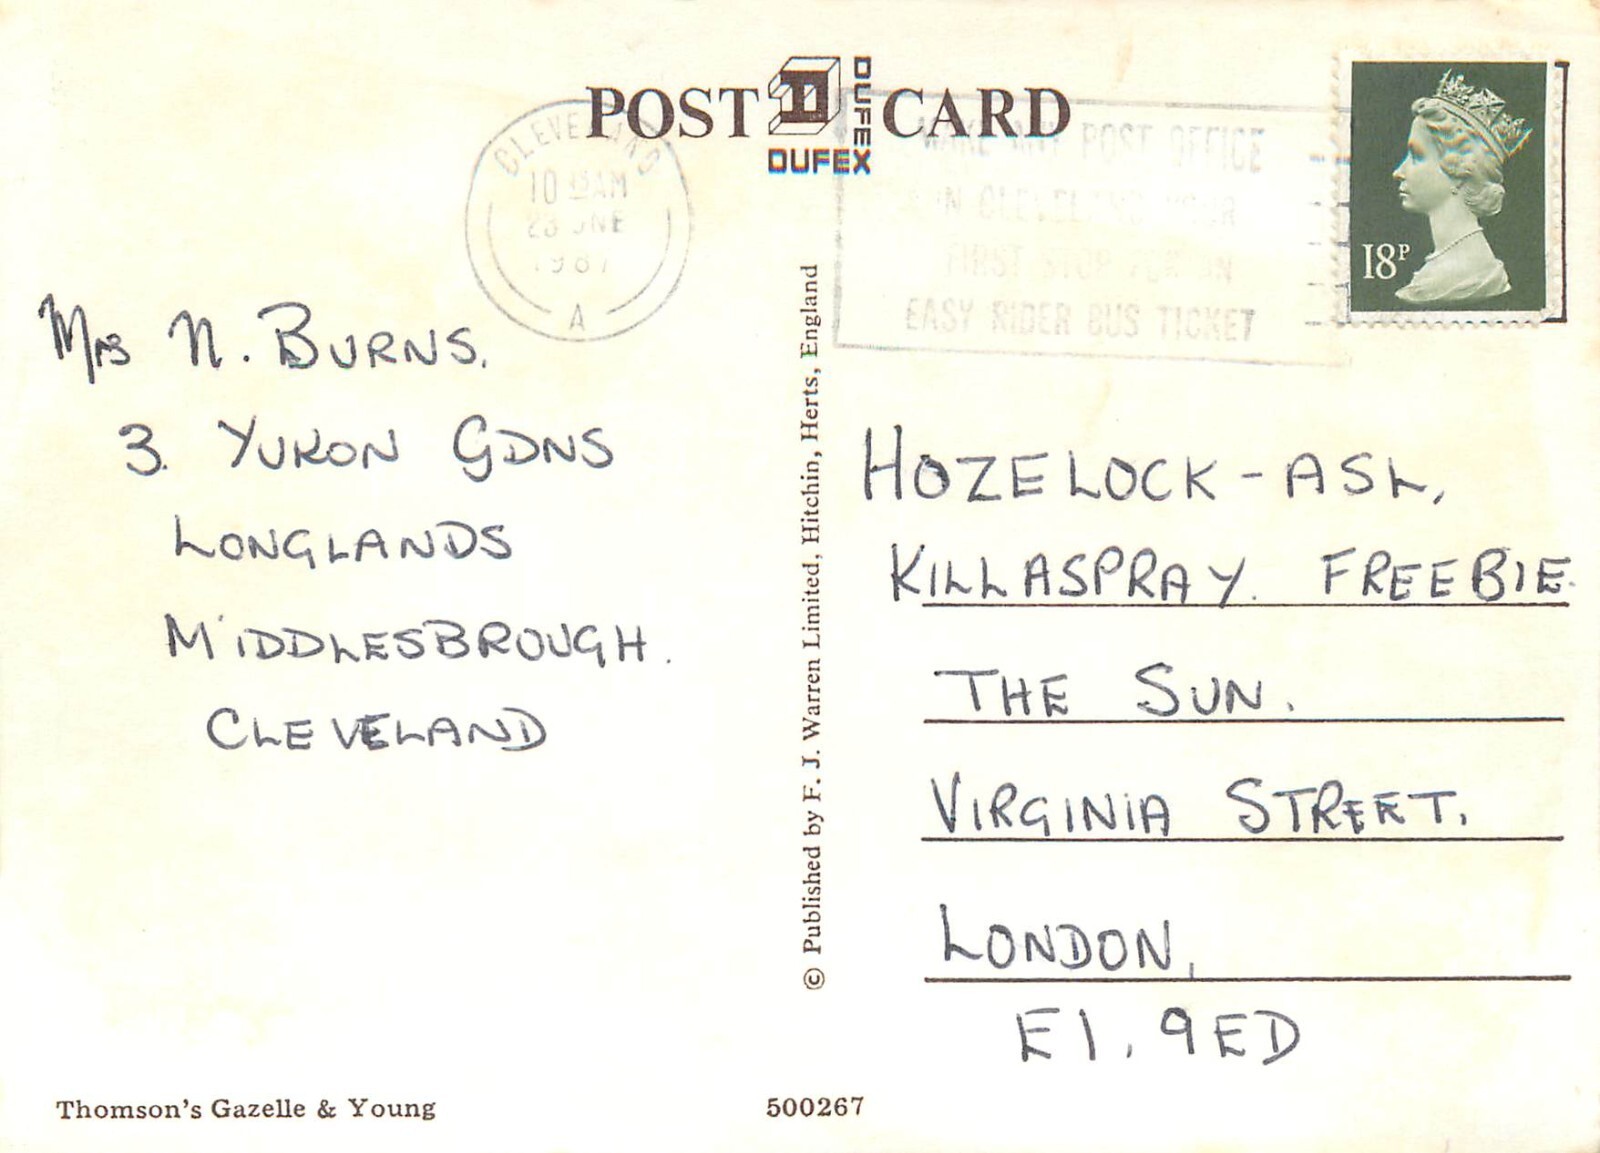 POST CARD
DUFEX
DUFEX
CLEVELAND
10 15AM
1987
A
MAKE ANY POST OFFICE
IN CLEVELAND YOUR
FIRST STOP FOR AN
EASY RIDER BUS TICKET
18P
Mrs N. BURNS.
3. YUKON GDNS
LONGLANDS
MIDDLESBROUGH.
CLEVELAND
© Published by F. J. Warren Limited, Hitchin, Herts, England
HOZELOCK - ASL,
KILLASPRAY. FREEBIE.
THE SUN.
VIRGINIA STREET.
LONDON,
E1. 9ED
Thomson's Gazelle & Young
500267